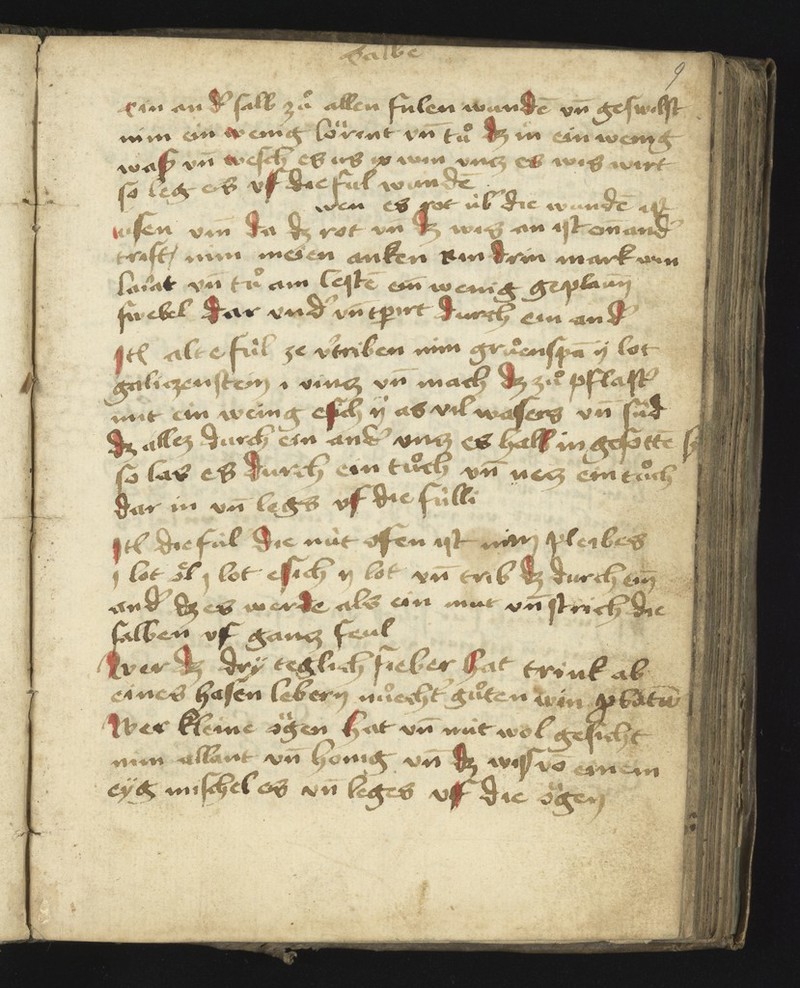 Salbe
9
Ein and' salb zů allen fulen wundē vn̄ geswilst
nim ein wenig lörint vn̄ tů dz in ein wenig
wasß vn̄ wesch es us win untz es wis wirt
so leg es uf die ful wundē
wen es rot úb' die wundē ist
da dz rot vn̄ dz wis an ist enand'
nim meien anken Rindrin mark
vn̄ tů am lestē ein wenig
swebel dar und' vn̄ durch ein and'
Itē alt e fúl ze v'triben nim grůenspā ij lot
galiczenstein ı untz vn̄ mach dz zů pflast'
mit ein wenig esch ij as vil wasers vn̄ súd
dz allez durch ein and' untz es halb in gesottē sy
so las es durch ein tůch vn̄ netz ein tůch
dar in vn̄ legs uf die fúlli
Itē die ful die nút offen ist nim pleibes
j lot öl j lot esich ij lot vn̄ trib dz durch ein
and' dz es werde als ein mus vn̄ strich die
salben uf gantz feul
Wer dz dry teglich fieber hat trink ab
eines hasen lebern nůecht' gůten win
Wer kleine ögen hat vn̄ nút wol gesicht
nim allant vn̄ honig vn̄ dz wiss vo einem
eyg mischel es vn̄ leges uff die ögen